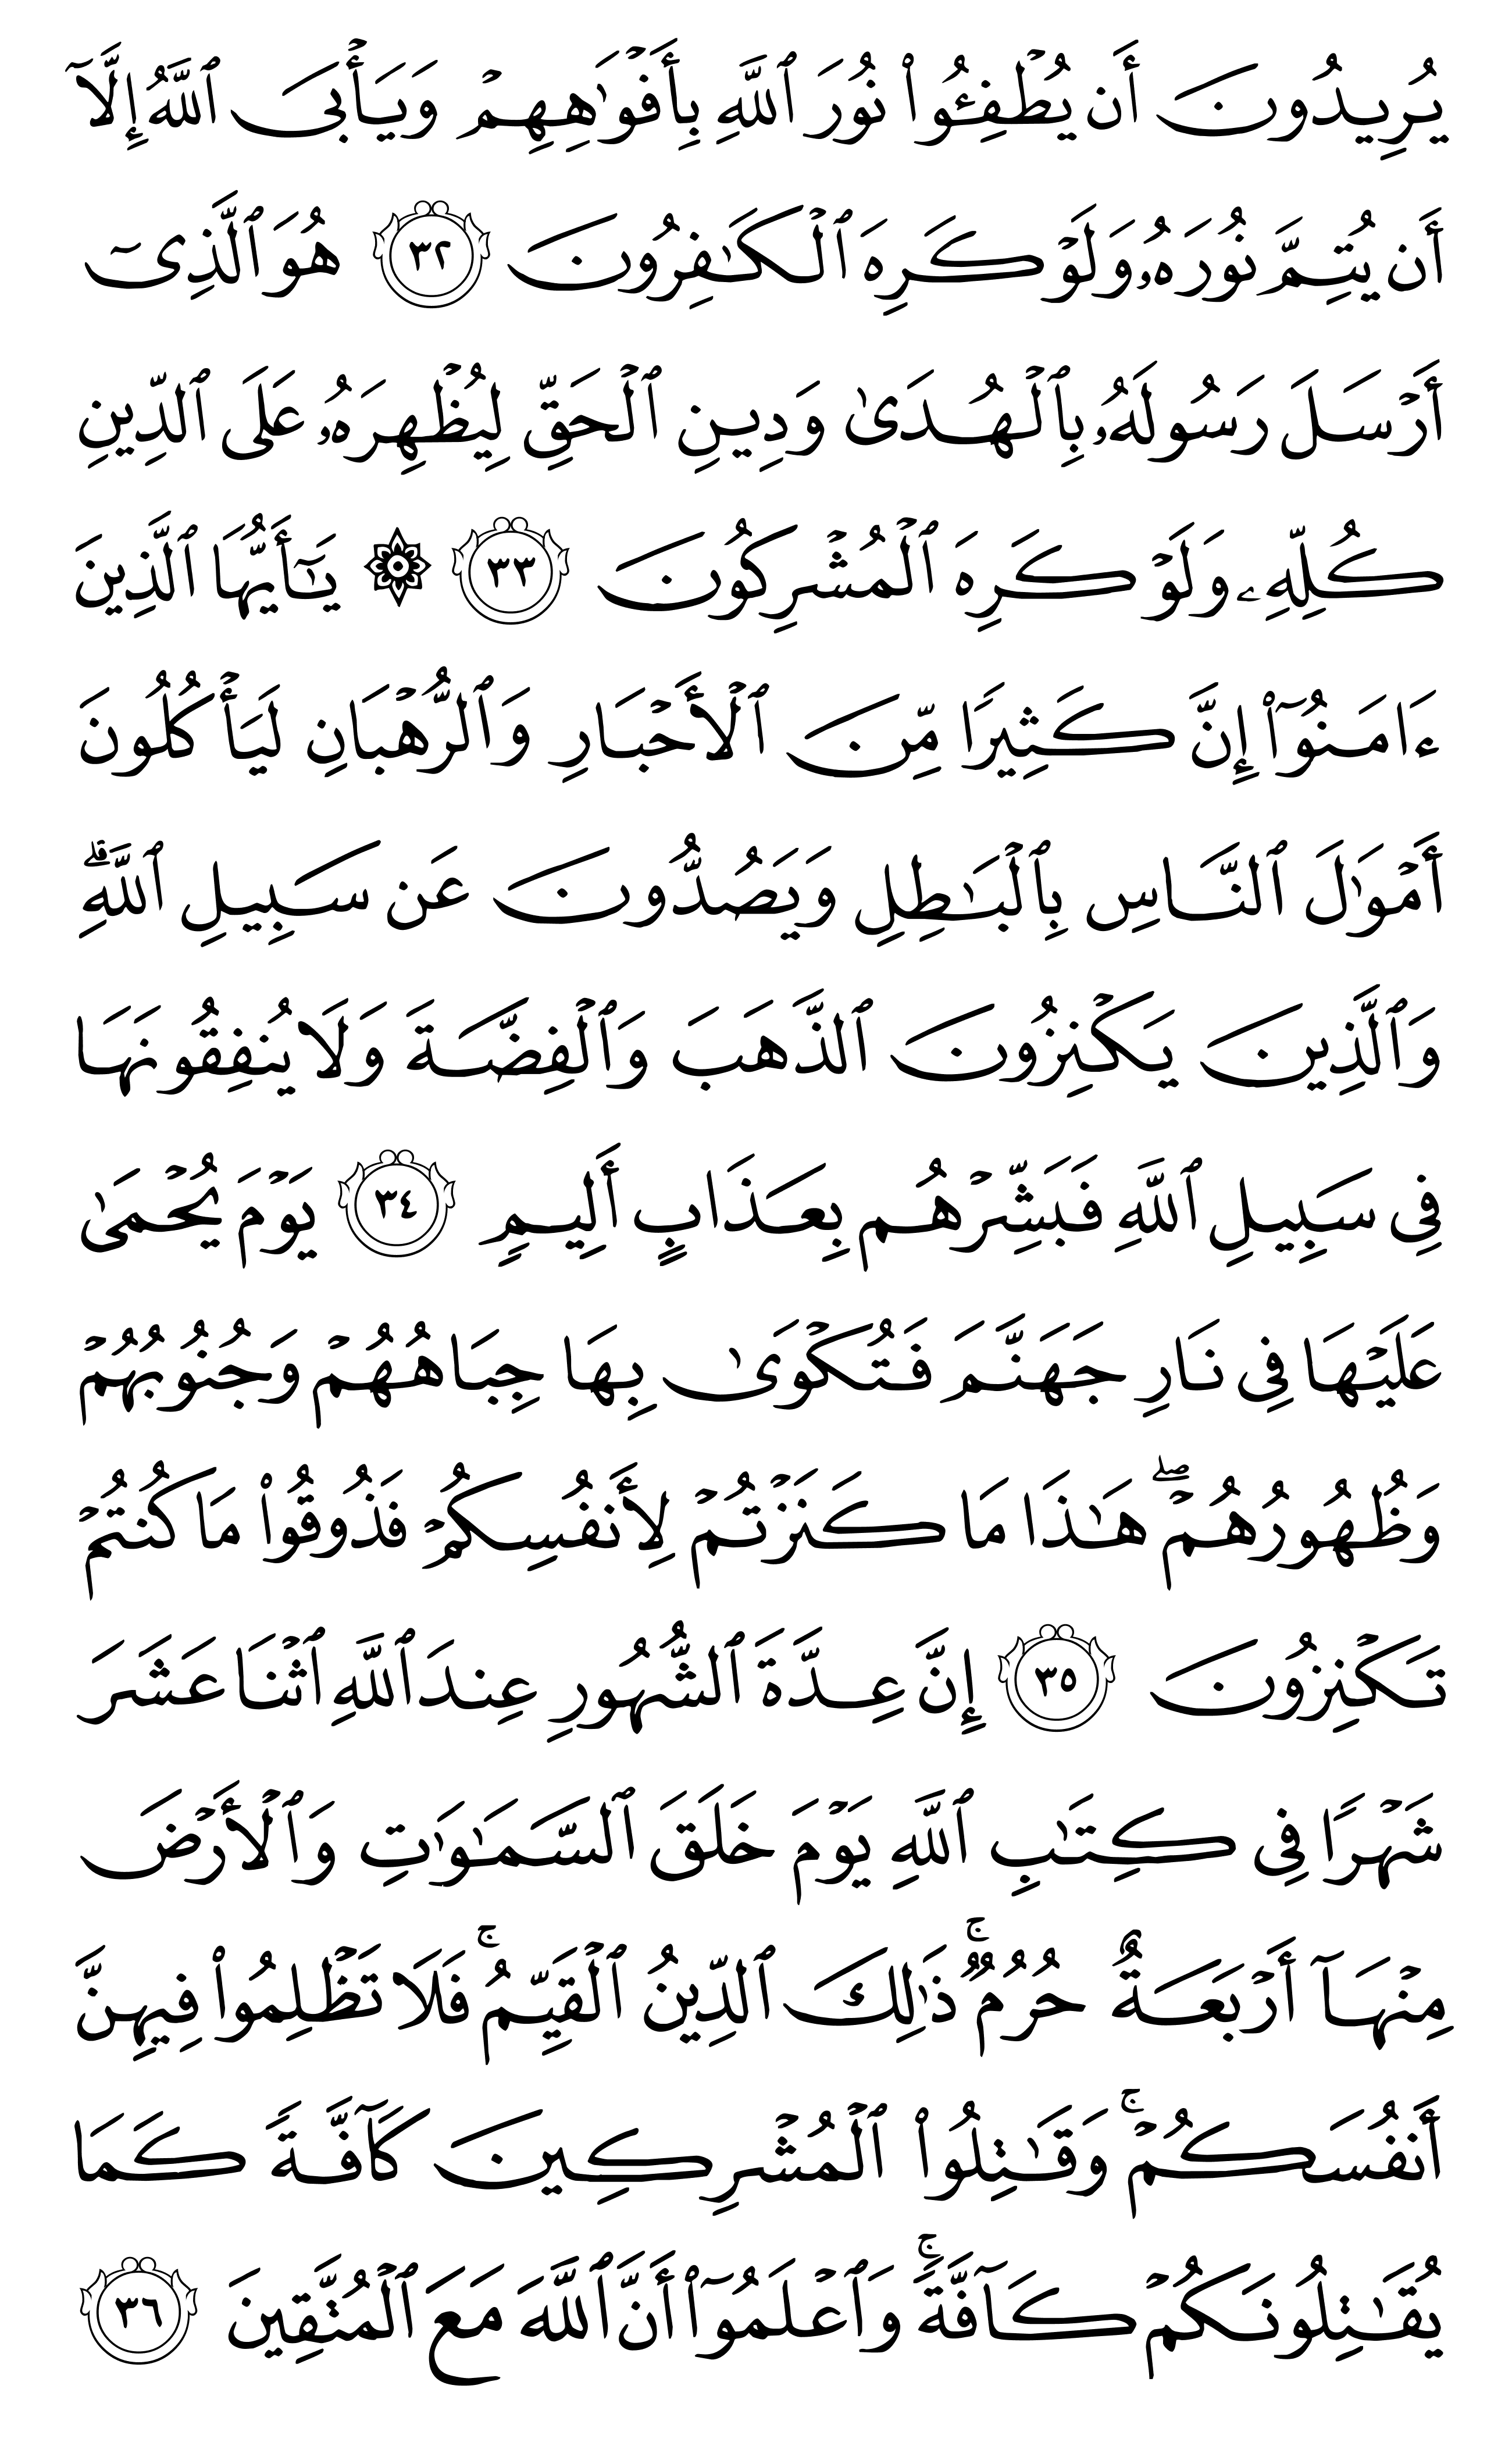 يُرِيدُونَ أَن يُطۡفِـُٔواْ نُورَ ٱللَّهِ بِأَفۡوَٰهِهِمۡ وَيَأۡبَى ٱللَّهُ إِلَّآ
أَن يُتِمَّ نُورَهُۥ وَلَوۡ كَرِهَ ٱلۡكَٰفِرُونَ ٣٢ هُوَ ٱلَّذِيٓ
أَرۡسَلَ رَسُولَهُۥ بِٱلۡهُدَىٰ وَدِينِ ٱلۡحَقِّ لِيُظۡهِرَهُۥ عَلَى ٱلدِّينِ
كُلِّهِۦ وَلَوۡ كَرِهَ ٱلۡمُشۡرِكُونَ ٣٣ ۞ يَٰٓأَيُّهَا ٱلَّذِينَ
ءَامَنُوٓاْ إِنَّ كَثِيرٗا مِّنَ ٱلۡأَحۡبَارِ وَٱلرُّهۡبَانِ لَيَأۡكُلُونَ
أَمۡوَٰلَ ٱلنَّاسِ بِٱلۡبَٰطِلِ وَيَصُدُّونَ عَن سَبِيلِ ٱللَّهِۗ
وَٱلَّذِينَ يَكۡنِزُونَ ٱلذَّهَبَ وَٱلۡفِضَّةَ وَلَا يُنفِقُونَهَا
فِي سَبِيلِ ٱللَّهِ فَبَشِّرۡهُم بِعَذَابٍ أَلِيمٖ ٣٤ يَوۡمَ يُحۡمَىٰ
عَلَيۡهَا فِي نَارِ جَهَنَّمَ فَتُكۡوَىٰ بِهَا جِبَاهُهُمۡ وَجُنُوبُهُمۡ
وَظُهُورُهُمۡۖ هَٰذَا مَا كَنَزۡتُمۡ لِأَنفُسِكُمۡ فَذُوقُواْ مَا كُنتُمۡ
تَكۡنِزُونَ ٣٥ إِنَّ عِدَّةَ ٱلشُّهُورِ عِندَ ٱللَّهِ ٱثۡنَا عَشَرَ
شَهۡرٗا فِي كِتَٰبِ ٱللَّهِ يَوۡمَ خَلَقَ ٱلسَّمَٰوَٰتِ وَٱلۡأَرۡضَ
مِنۡهَآ أَرۡبَعَةٌ حُرُمٞۚ ذَٰلِكَ ٱلدِّينُ ٱلۡقَيِّمُۚ فَلَا تَظۡلِمُواْ فِيهِنَّ
أَنفُسَكُمۡۚ وَقَٰتِلُواْ ٱلۡمُشۡرِكِينَ كَآفَّةٗ كَمَا
يُقَٰتِلُونَكُمۡ كَآفَّةٗۚ وَٱعۡلَمُوٓاْ أَنَّ ٱللَّهَ مَعَ ٱلۡمُتَّقِينَ ٣٦